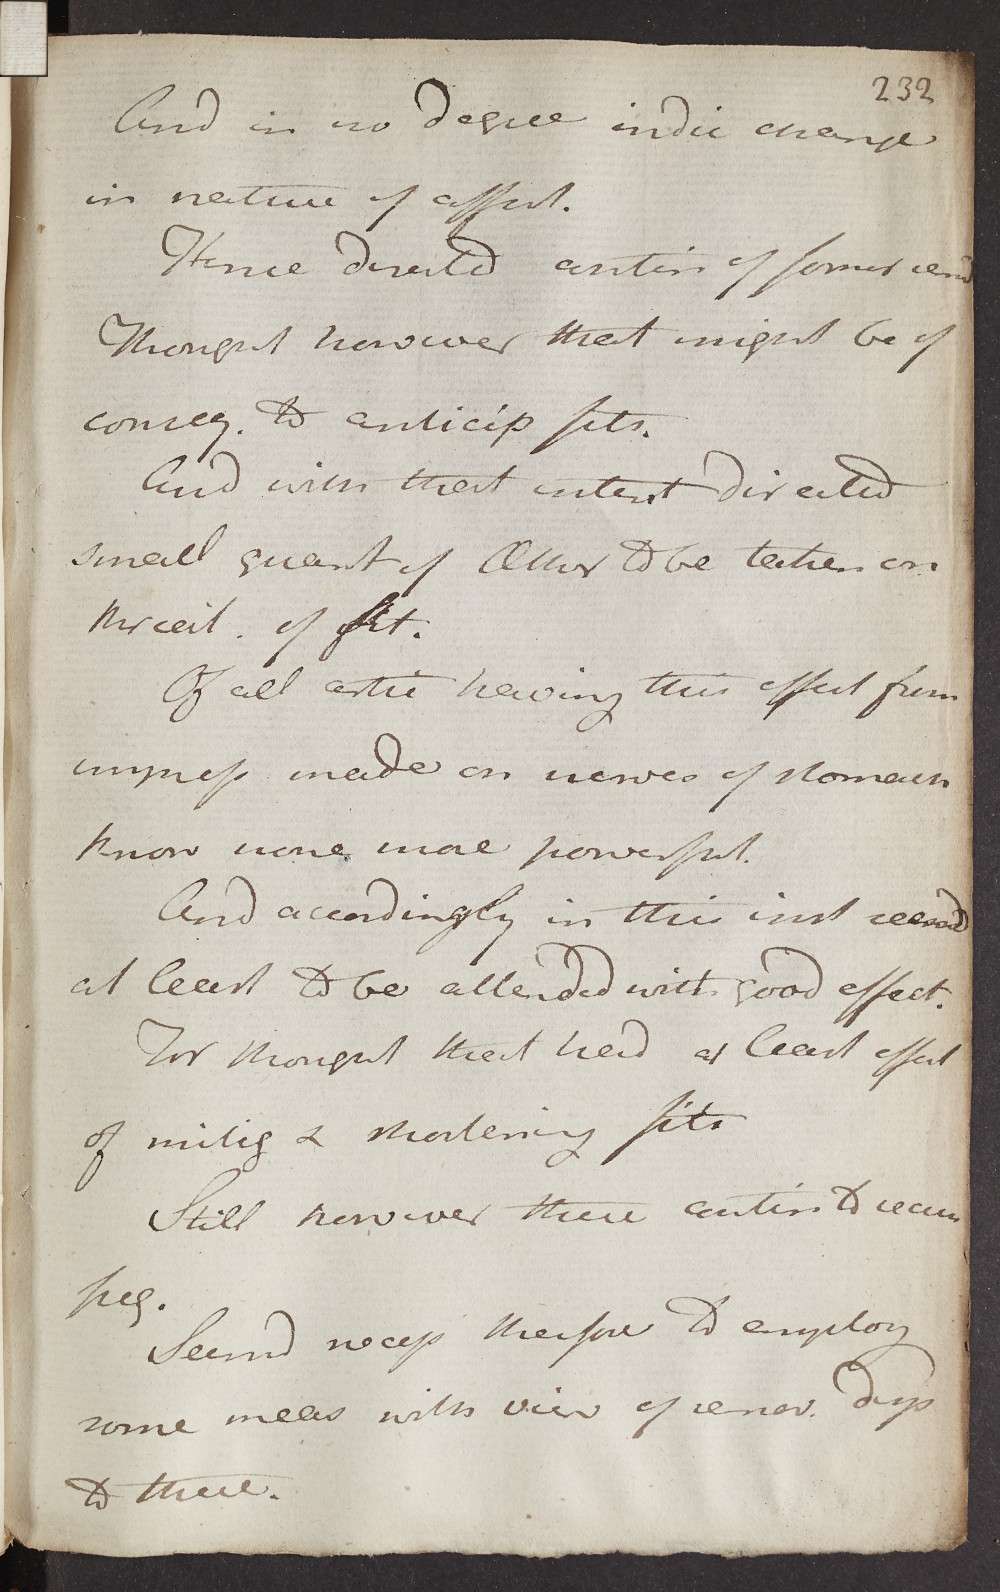 232
And in no degree indic change
in nature of affect.
Hence directed contin of former
Thought however that might be of
conseq. to anticip fits.
And with that intent directed
small quant of Æther to be taken on
threat. of fit.
Of all artic having this effect from
impress made on nerves of stomach
know none more powerful.
And accordingly in this inst seemd
at least to be attended with good effect.
For thought that had at least effect
of mitig & shortening fits
Still however these contin to recur
freq.
Seemd necess therefore to employ
some meas with view of remov. disp
to these.